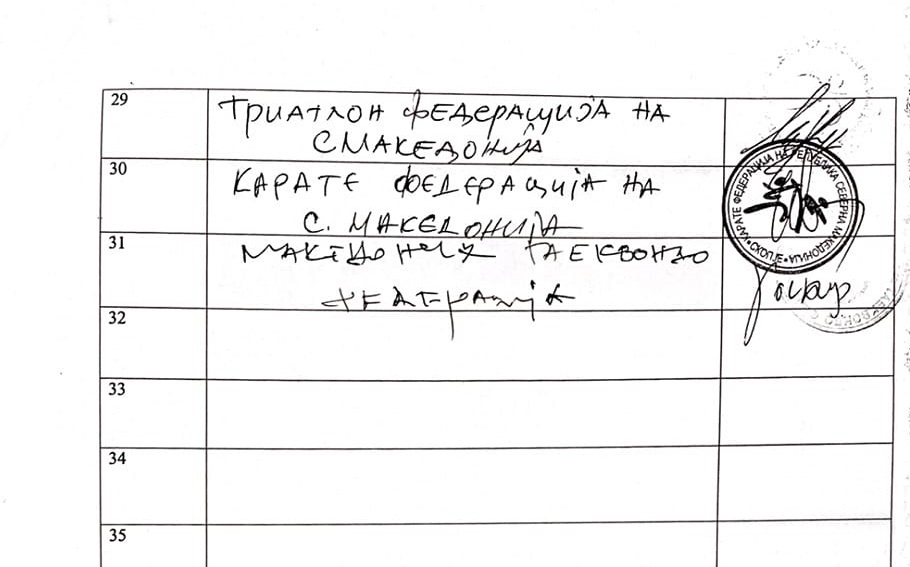 29
ТРИАТЛОН ФЕДЕРАЦИЈА НА
С МАКЕДОНИЈА
30
КАРАТЕ ФЕДЕРАЦИЈА НА
С. МАКЕДОНИЈА
КАРАТЕ ФЕДЕРАЦИЈА НА РЕПУБЛИКА СЕВЕРНА МАКЕДОНИЈА • СКОПЈЕ •
31
ТАЕКВОНДО
ФЕДЕРАЦИЈА
32
33
34
35